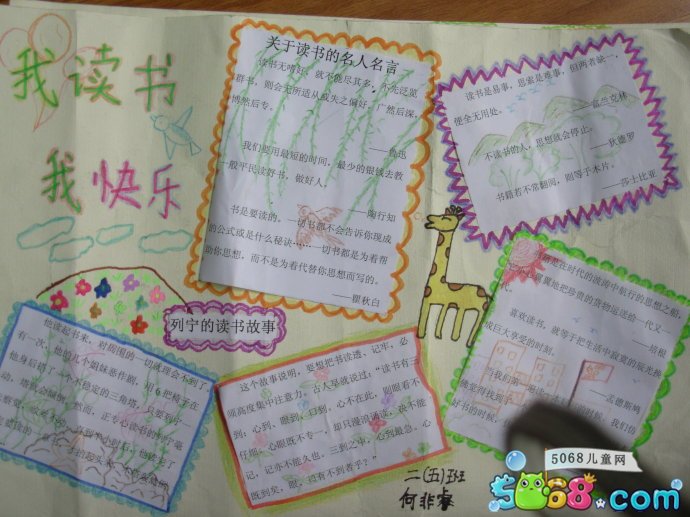 我读书
我快乐
关于读书的名人名言
读书无嗜好，就不能尽其多。不先泛览
群书，则会无所适从或失之偏好。广然后深，
博然后专。
——鲁迅
我们要用最短的时间，最少的银钱去教
一般平民读好书，做好人。
——陶行知
书是要读的。一切书都不会告诉你现成
的公式或是什么秘诀……一切书都是为着帮
助你思想，而不是为着代替你思想而写的。
——瞿秋白
读书是易事，思索是难事，但两者缺一，
便全无用处。
——富兰克林
不读书的人，思想就会停止。
——狄德罗
书籍若不常翻阅，则等于木片。
——莎士比亚
书籍是在时代的波涛中航行的思想之船，
小心翼翼地把珍贵的货物运送给一代又一
——培根
喜欢读书，就等于把生活中寂寞的辰光换
成巨大享受的时刻。
——孟德斯鸠
列宁的读书故事
他读起书来，对周围的一切就理会不到了。
有一次，他的几个姐妹恶作剧，用6把椅子在
他身后搭了一个不稳定的三角塔，只要列宁一
动，塔就会倾倒。然而，正专心读书的列宁毫
这个故事说明，要想把书读透、记牢，必
须高度集中注意力。古人早就说过：“读书有三
到：心到、眼到、口到。心不在此，则眼看不
仔细。心眼既不专一，却只漫浪诵读，决不能
记，记亦不能久也。三到之中，心到最急，心
既到矣，眼、口有不到者乎？”
二(五)班
何非睿
5068儿童网
5068.com